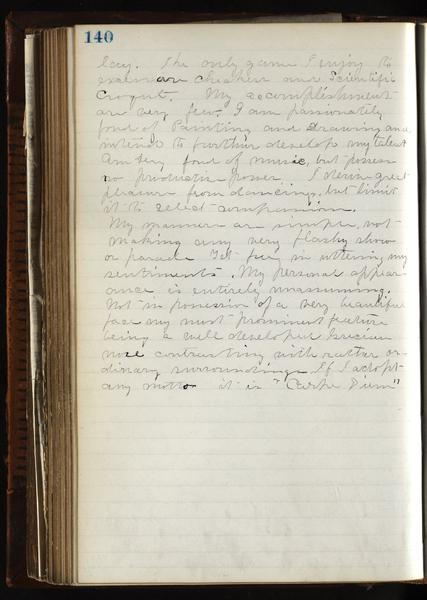 140
lacy. The only game I enjoy to
excess are checkers and Scientific
Croquet. My accomplishments
are very few. I am passionately
fond of Painting and drawing and
intend to further develope my talent
Am very fond of music, but possess
no productive power. I derive great
pleasure from dancing, but limit
it to select companions.
My manners are simple, not
making any very flashy show
or parade Yet free in uttering my
sentiments. My personal appear
ance is entirely unassuming.
Not in possession of a very beautiful
face my most prominent feature
being a well developed Grecian
nose contrasting with rather or-
dinary surroundings. If I adopt
any motto it is "Carpe Diem"